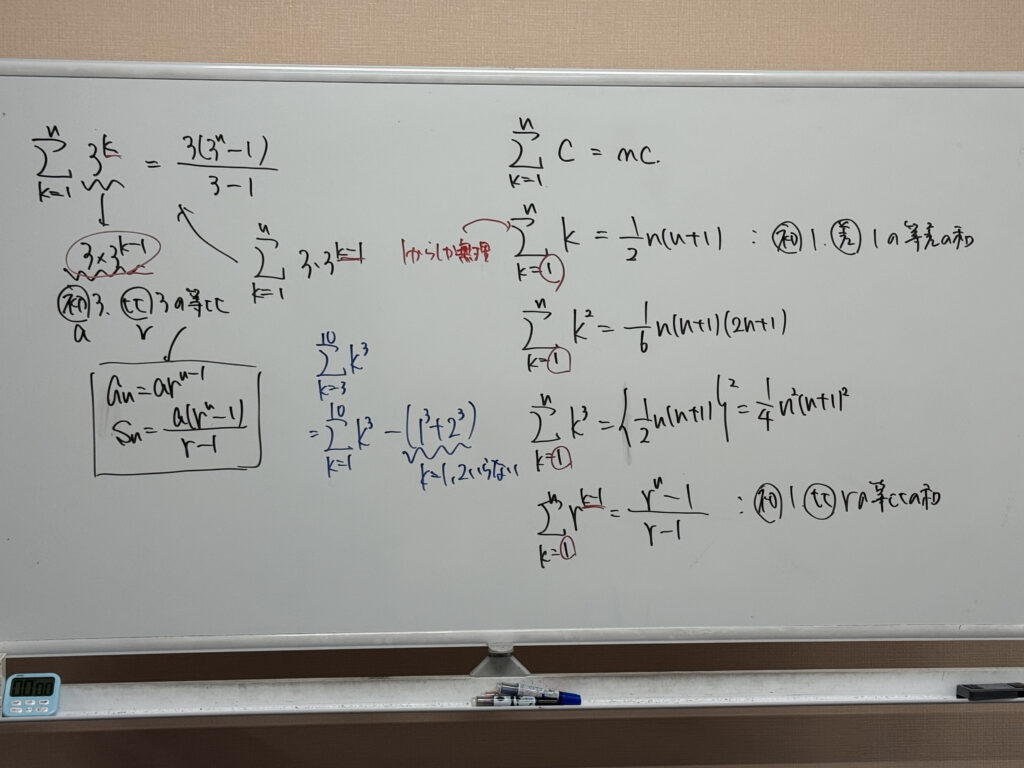 n
∑ 3^k = 3(3^n-1)/3-1
k=1
3×3^{k-1}
初 3. 比 3の等比
a r
n
∑ 3・3^{k-1}
k=1
an=ar^{n-1}
Sn=a(r^n-1)/r-1
10
∑ k^3
k=3
10
=∑ k^3-(1^3+2^3)
k=1
k=1,2いらない
n
∑ C = nC.
k=1
1からしか無理
n
∑ k = 1/2 n(n+1) : 初 1. 差 1の等差の和
k=1
n
∑ k^2 = 1/6 n(n+1)(2n+1)
k=1
n
∑ k^3 = {1/2 n(n+1)}^2 = 1/4 n^2(n+1)^2
k=1
n
∑ r^{k-1} = r^n-1/r-1 : 初 1 比 rの等比の和
k=1